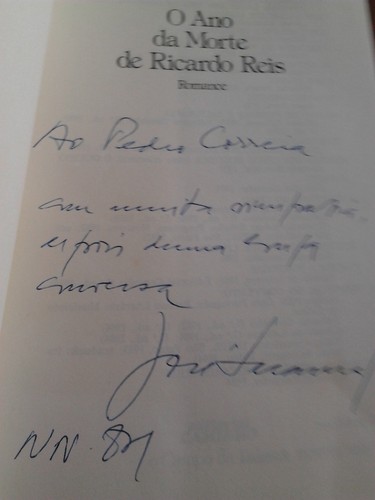 O Ano
da Morte
de Ricardo Reis
Romance
Ao Pedro Correia
com muita simpatia,
depois duma longa
conversa
José Saramago
NN. 84